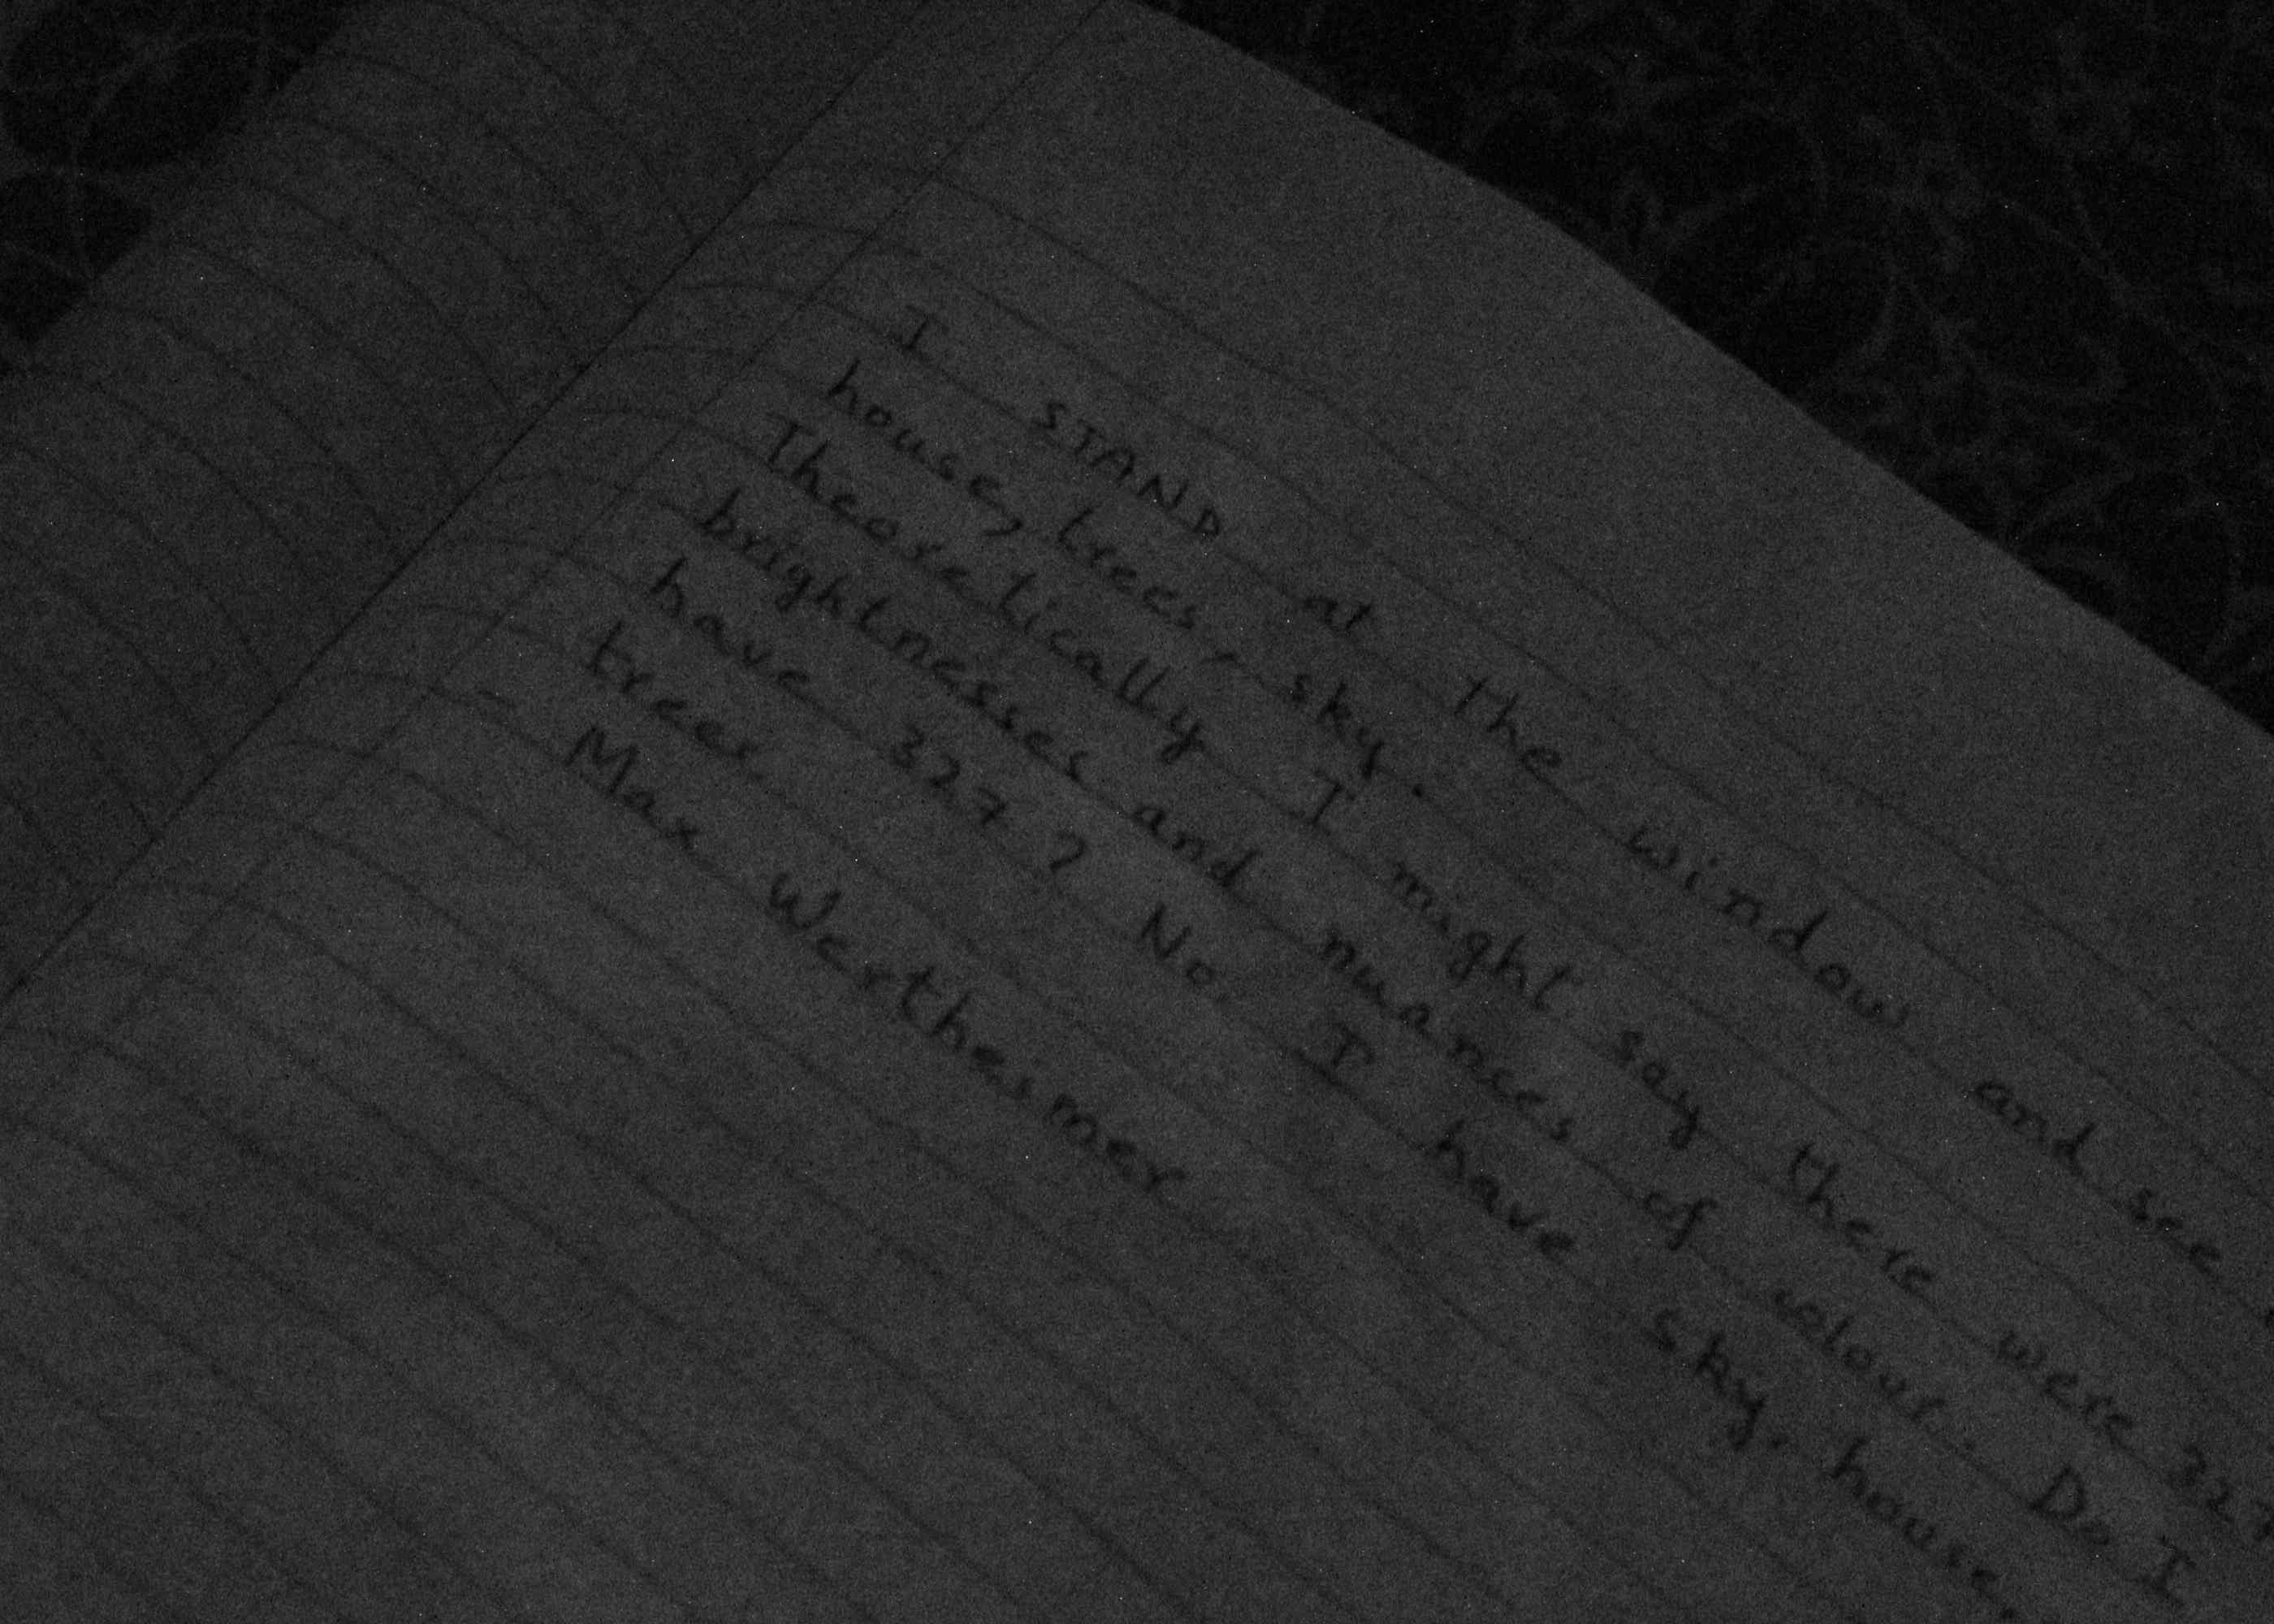 I STAND at the window and see
house, trees, sky.
Theoretically I might say there were 327
brightnesses and nuances of colour. Do I
have 327? No. I have sky, house,
trees.
Max Werthesmer